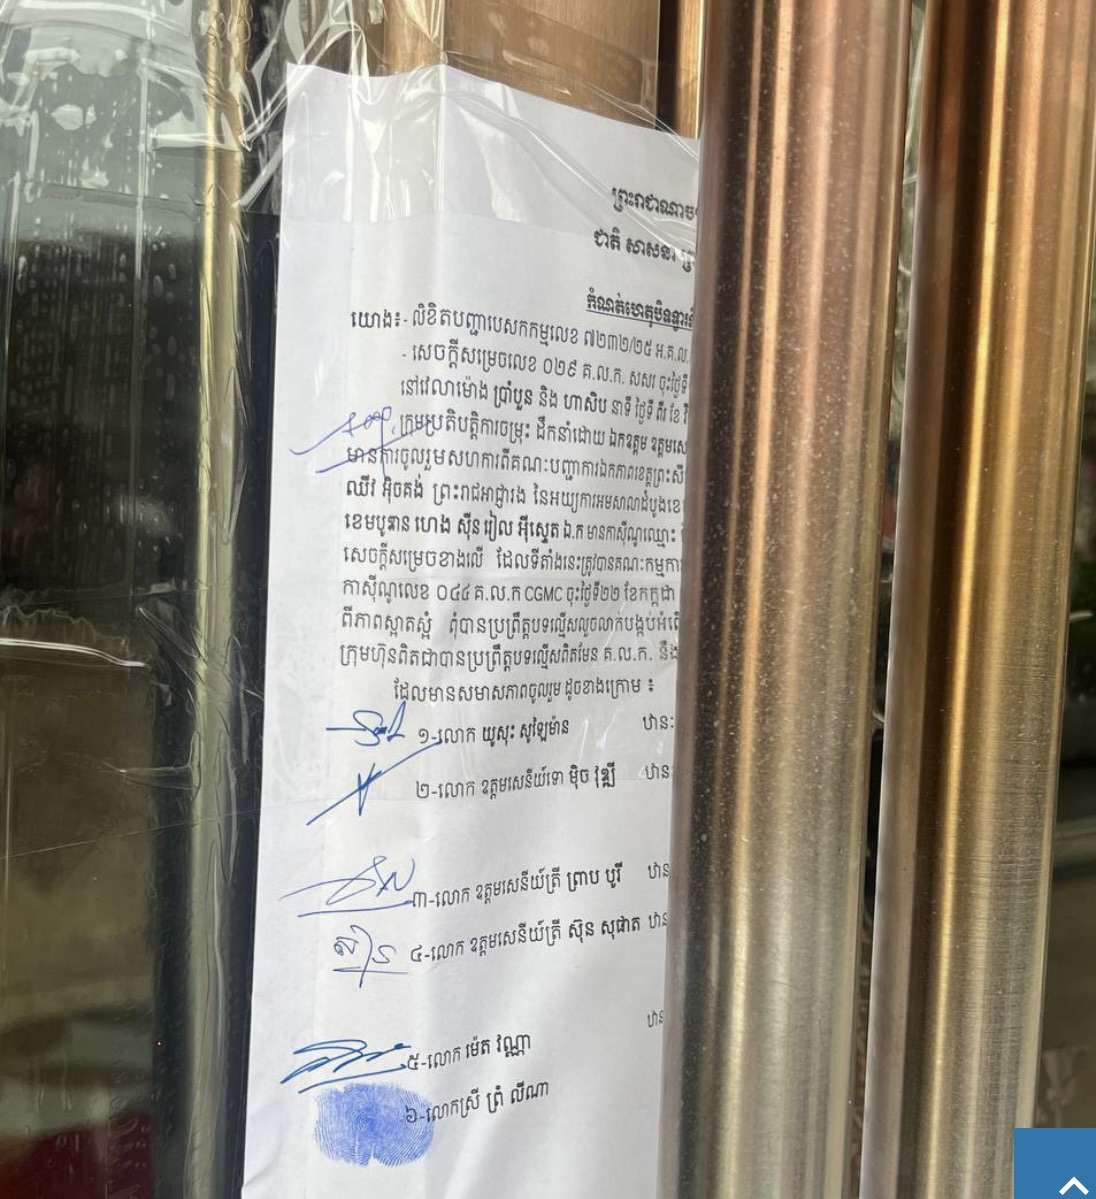 ព្រះរាជាណាច
ជាតិ សាសនា ព្រ
កំណត់ហេតុបិទទ្វារ
យោង៖- លិខិតបញ្ជាបេសកកម្មលេខ ៧២៣២/២៥ អ.គ.ល.
- សេចក្តីសម្រេចលេខ ០២៩ គ.ល.ក. សសរ ចុះថ្ងៃទី
នៅវេលាម៉ោង ប្រាំបួន និង ហាសិប នាទី ថ្ងៃទី ពីរ ខែ
ក្រុមប្រតិបត្តិការចម្រុះ ដឹកនាំដោយ ឯកឧត្តម ឧត្តមសេ
មានការចូលរួមសហការពីគណៈបញ្ជាការឯកភាពខេត្តព្រះសី
ឈីវ អ៊ិចតង់ ព្រះរាជអាជ្ញារង នៃអយ្យការអមសាលាដំបូងខេ
ខេមបូឌាន ហេង ស៊ីន រៀល អ៊ីស្ទេត ឯ.ក មានកាស៊ីណូឈ្មោះ
សេចក្តីសម្រេចខាងលើ ដែលទីតាំងនេះត្រូវបានគណៈកម្មកា
កាស៊ីណូលេខ ០៤៤ គ.ល.ក CGMC ចុះថ្ងៃទី២២ ខែកក្កដា
ពីភាពស្អាតស្អំ ពុំបានប្រព្រឹត្តបទល្មើសលួចលាក់បង្កប់អំពើ
ក្រុមហ៊ុនពិតជាបានប្រព្រឹត្តបទល្មើសពិតមែន គ.ល.ក. នឹង
ដែលមានសមាសភាពចូលរួម ដូចខាងក្រោម ៖
១-លោក យូសុះ សូឡៃម៉ាន ឋានៈ
២-លោក ឧត្តមសេនីយ៍ទោ ម៉ិច វុឌ្ឍី ឋាន
៣-លោក ឧត្តមសេនីយ៍ត្រី ព្រាប បូរី ឋាន
៤-លោក ឧត្តមសេនីយ៍ត្រី ស៊ុន សុផាត ឋាន
ឋាន
៥-លោក ម៉េត វណ្ណា
៦-លោកស្រី ព្រំ លីណា